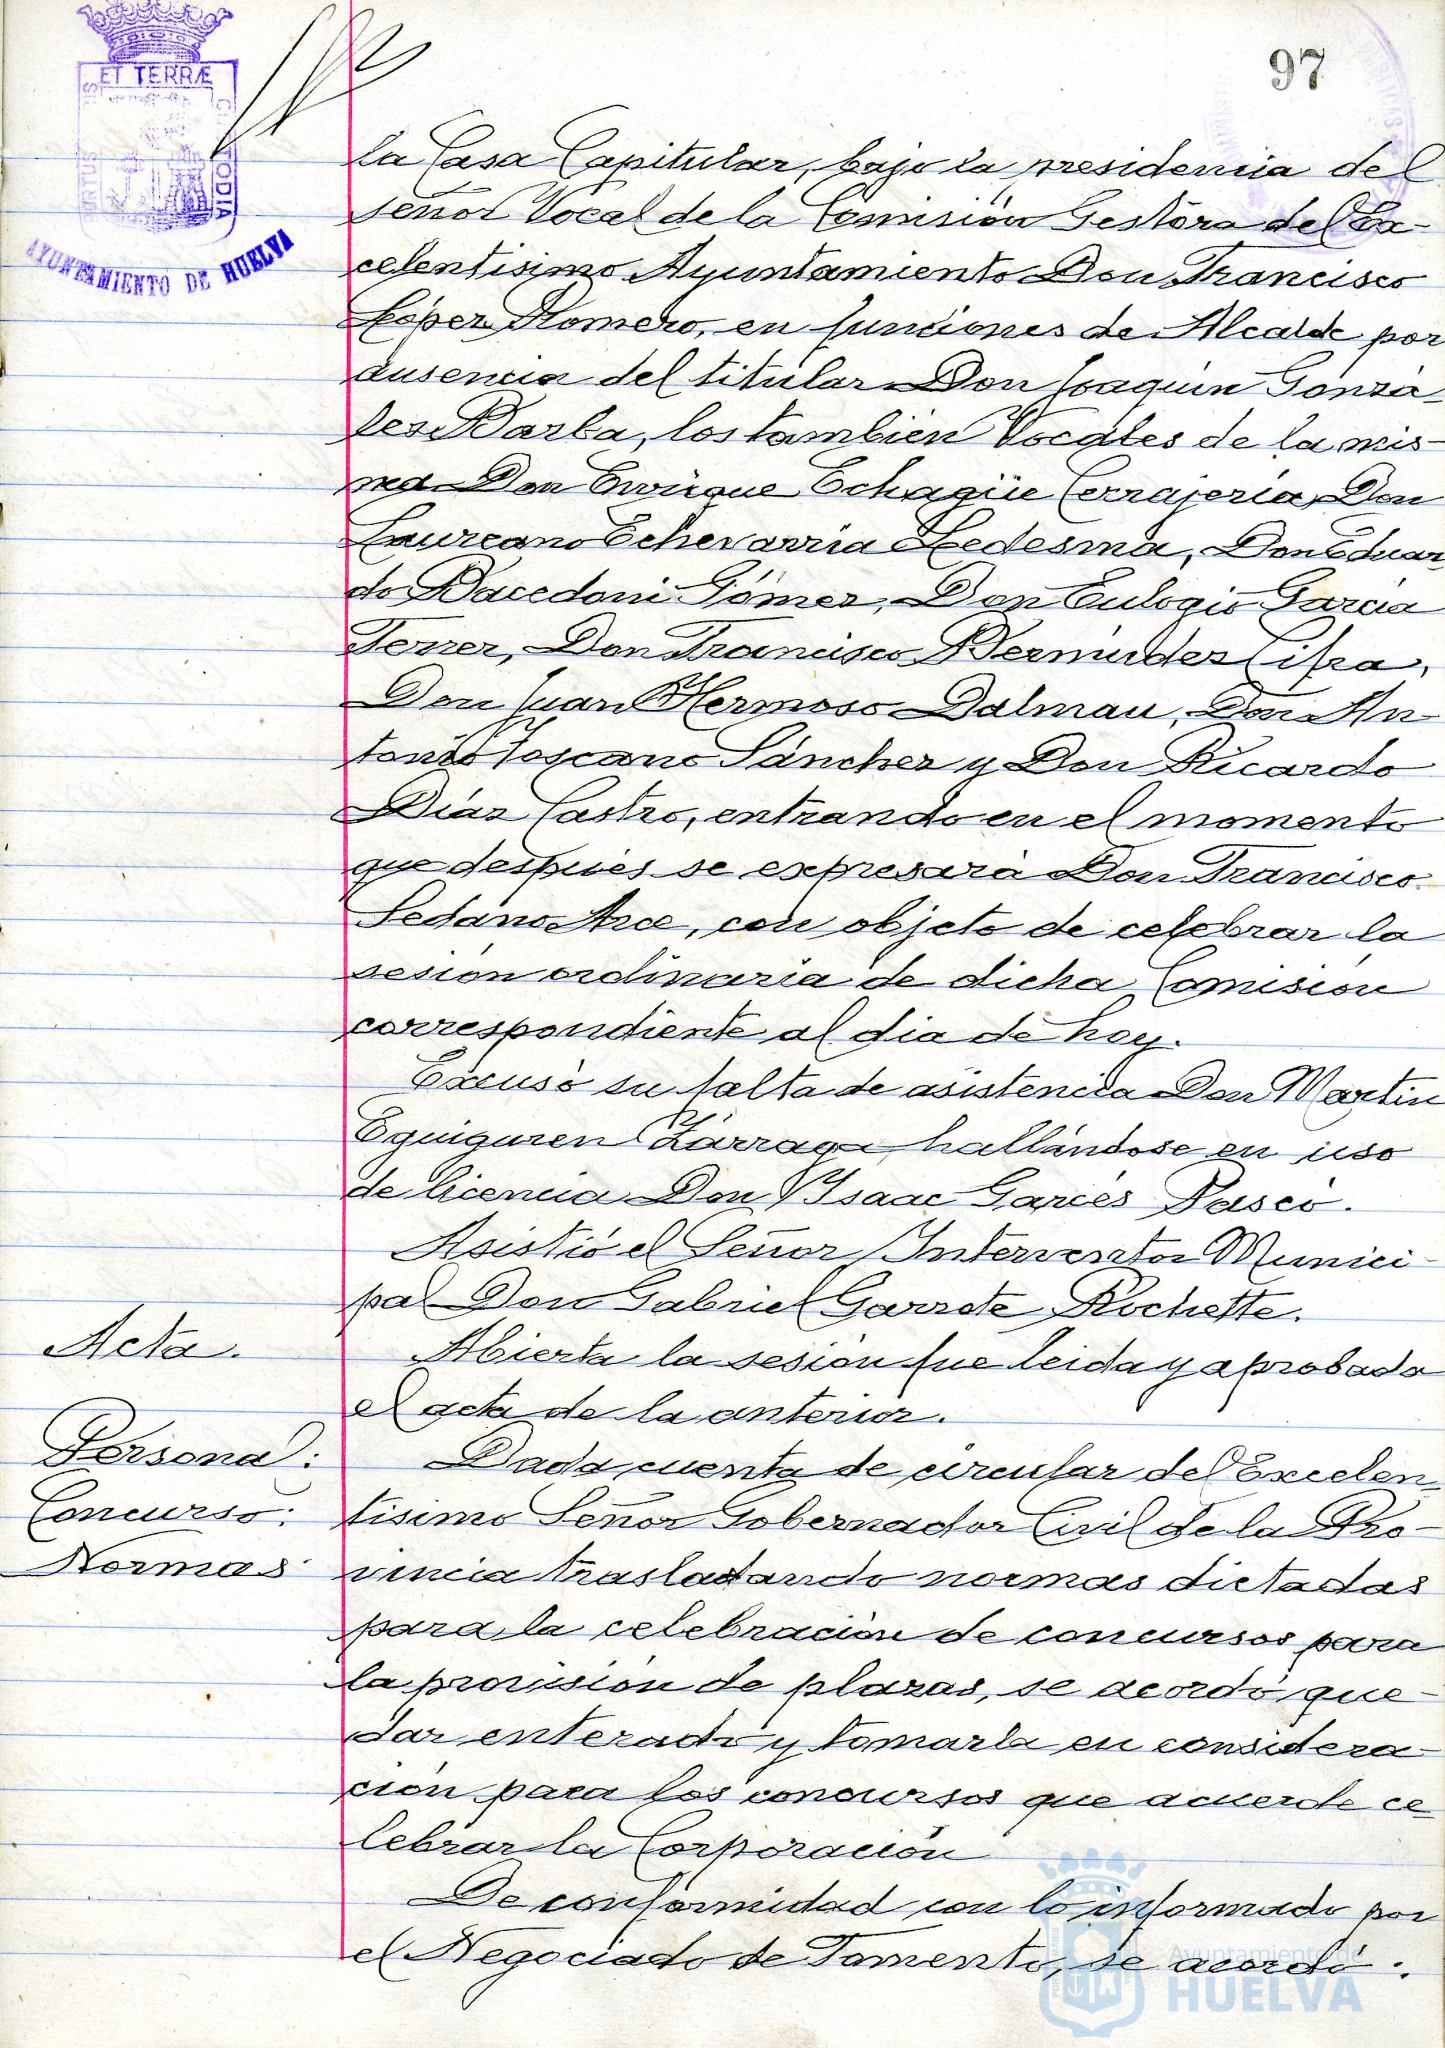 97
ET TERRÆ
PORTUS
CUSTODIA
AYUNTAMIENTO DE HUELVA
la Casa Capitular, bajo la presidencia del
señor Vocal de la Comisión Gestora del Ex-
celentisimo Ayuntamiento Don Francisco
López Romero, en funciones de Alcalde por
ausencia del titular Don Joaquin Gonzá-
lez Barba, los tambien Vocales de la mis-
ma Don Enrique Echagüe Cerrajeria, Don
Laureano Echevarria Ledesma, Don Eduar
do Bacedoni Gómez, Don Eulogio Garcia
Ferrer, Don Francisco Bermúdez Cifra,
Don Juan Hermoso Dalmau, Don An-
tonio Toscano Sánchez y Don Ricardo
Diaz Castro, entrando en el momento
que después se expresará Don Francisco
Sedano Arce, con objeto de celebrar la
sesión ordinaria de dicha Comisión
correspondiente al dia de hoy.
Excusó su falta de asistencia Don Martin
Eguiguren Zárraga, hallándose en uso
de licencia Don Isaac Garcés Paseo.
Asistió el Señor Interventor Munici-
pal Don Gabriel Garrote Rochette.
Acta.
Abierta la sesión fue leida y aprobada
el acta de la anterior.
Personal:
Concurso:
Normas
Dada cuenta de circular del Excelen-
tisimo Señor Gobernador Civil de la Pro-
vincia trasladando normas dictadas
para la celebración de concursos para
la provisión de plazas, se acordó que-
dar enterado y tomarla en considera-
ción para los concursos que acuerde ce-
lebrar la Corporación
De conformidad con lo informado por
el Negociado de Fomento, se acordó:
Ayuntamiento de
HUELVA